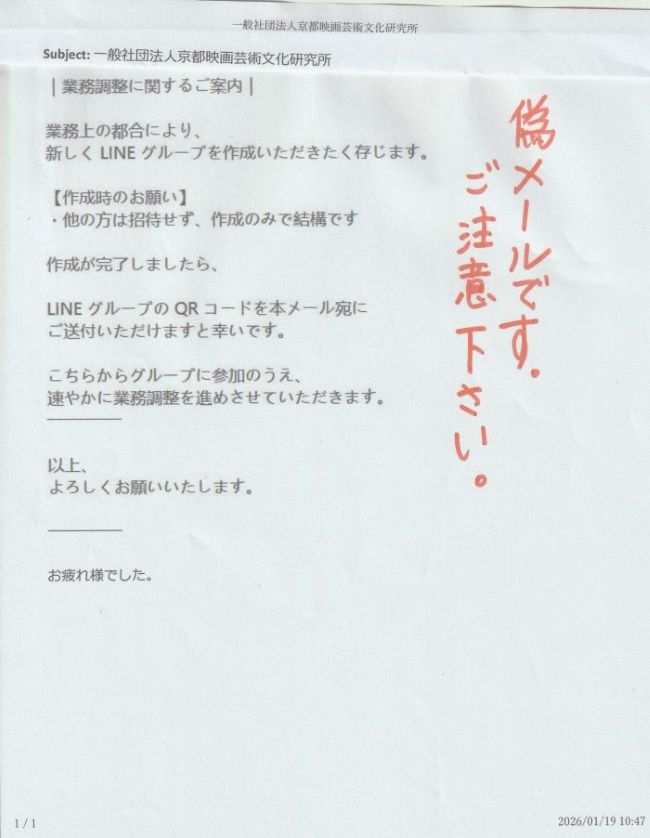 一般社団法人京都映画芸術文化研究所
Subject: 一般社団法人京都映画芸術文化研究所
｜業務調整に関するご案内｜
業務上の都合により、
新しく LINE グループを作成いただきたく存じます。
【作成時のお願い】
・他の方は招待せず、作成のみで結構です
作成が完了しましたら、
LINE グループの QR コードを本メール宛に
ご送付いただけますと幸いです。
こちらからグループに参加のうえ、
速やかに業務調整を進めさせていただきます。
以上、
よろしくお願いいたします。
お疲れ様でした。
偽メールです.
ご注意下さい。
1 / 1
2026/01/19 10:47